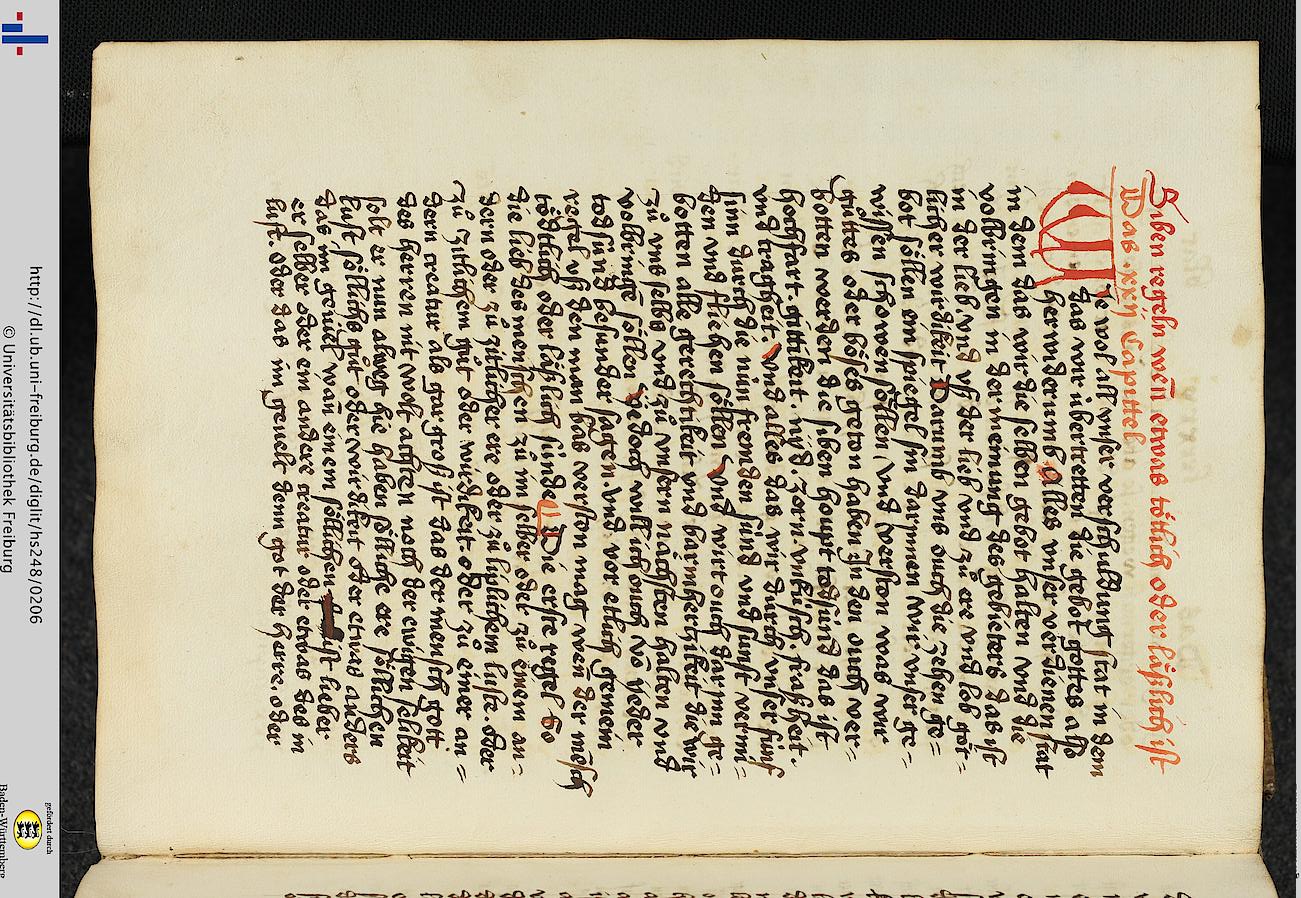 Siben regeln wen̄ etwas tötlich oder läßlich ist
Das .xxij. Capittel
Wie wol all vnser verschuldung stat in dem
das wir übertretten die gebot gottes also
herwiderumb Alles vnser verdienen stat
in dem das wir die selben gebot halten vnd die
volbringen in der meinung des gebieters das ist
in der lieb, vnd vß der lieb vnd zů ere vnd lob göt-
licher wirdikeit Darumb vns ouch die zehen ge-
bot söllen ein spiegel sin darinnen wir vnser ge-
wissen schowen söllen, vnd verston was wir
gůttes oder böses geton haben In den ouch ver-
botten werden die siben houpt todsünd das ist
hochfart. gittikeit. nyd. zorn. vnküsch. fraßheit.
vnd tragheit. Vnd alles das wir durch vnser fünf
sinn durch die nün fremden sünd vnd sunst vermi-
den vnd fliehen söllen Vnd wirt ouch darjnn ge-
botten alle gerechtikeit vnd barmhertzikeit die wir
zů vns selbs vnd zů vnsern nächsten halten vnd
volbringē söllen Yedoch will ich ouch vō yeder
todsünd besunder sagen vnd vor etlich gemein
regel och den man bas verston mag wen̄ der mēsch
tödtlich oder läßlich sünde Die erste regel So
die lieb des menschen zů im selber oder zů einem an-
dern oder zů zitlicher ere oder zů liplichem luste. oder
zů zitlichem gůt oder wirdikeit. oder zů einer an-
dern creatur als gar groß ist das der mensch gott
des herren nit wolt achten noch der ewigen selikeit
solt er nun alweg hie haben söliche ere söllichen
lust söllichs gůt oder wirdikeit oder etwas anders
das im geuiel wan̄ einem söllichen ist lieber
er selber oder ein andere creatur oder etwas des in
lust. oder das im geuelt denn got der herre. oder
http://dl.ub.uni-freiburg.de/diglit/hs248/0206
© Universitätsbibliothek Freiburg
gefördert durch
Baden-Württemberg